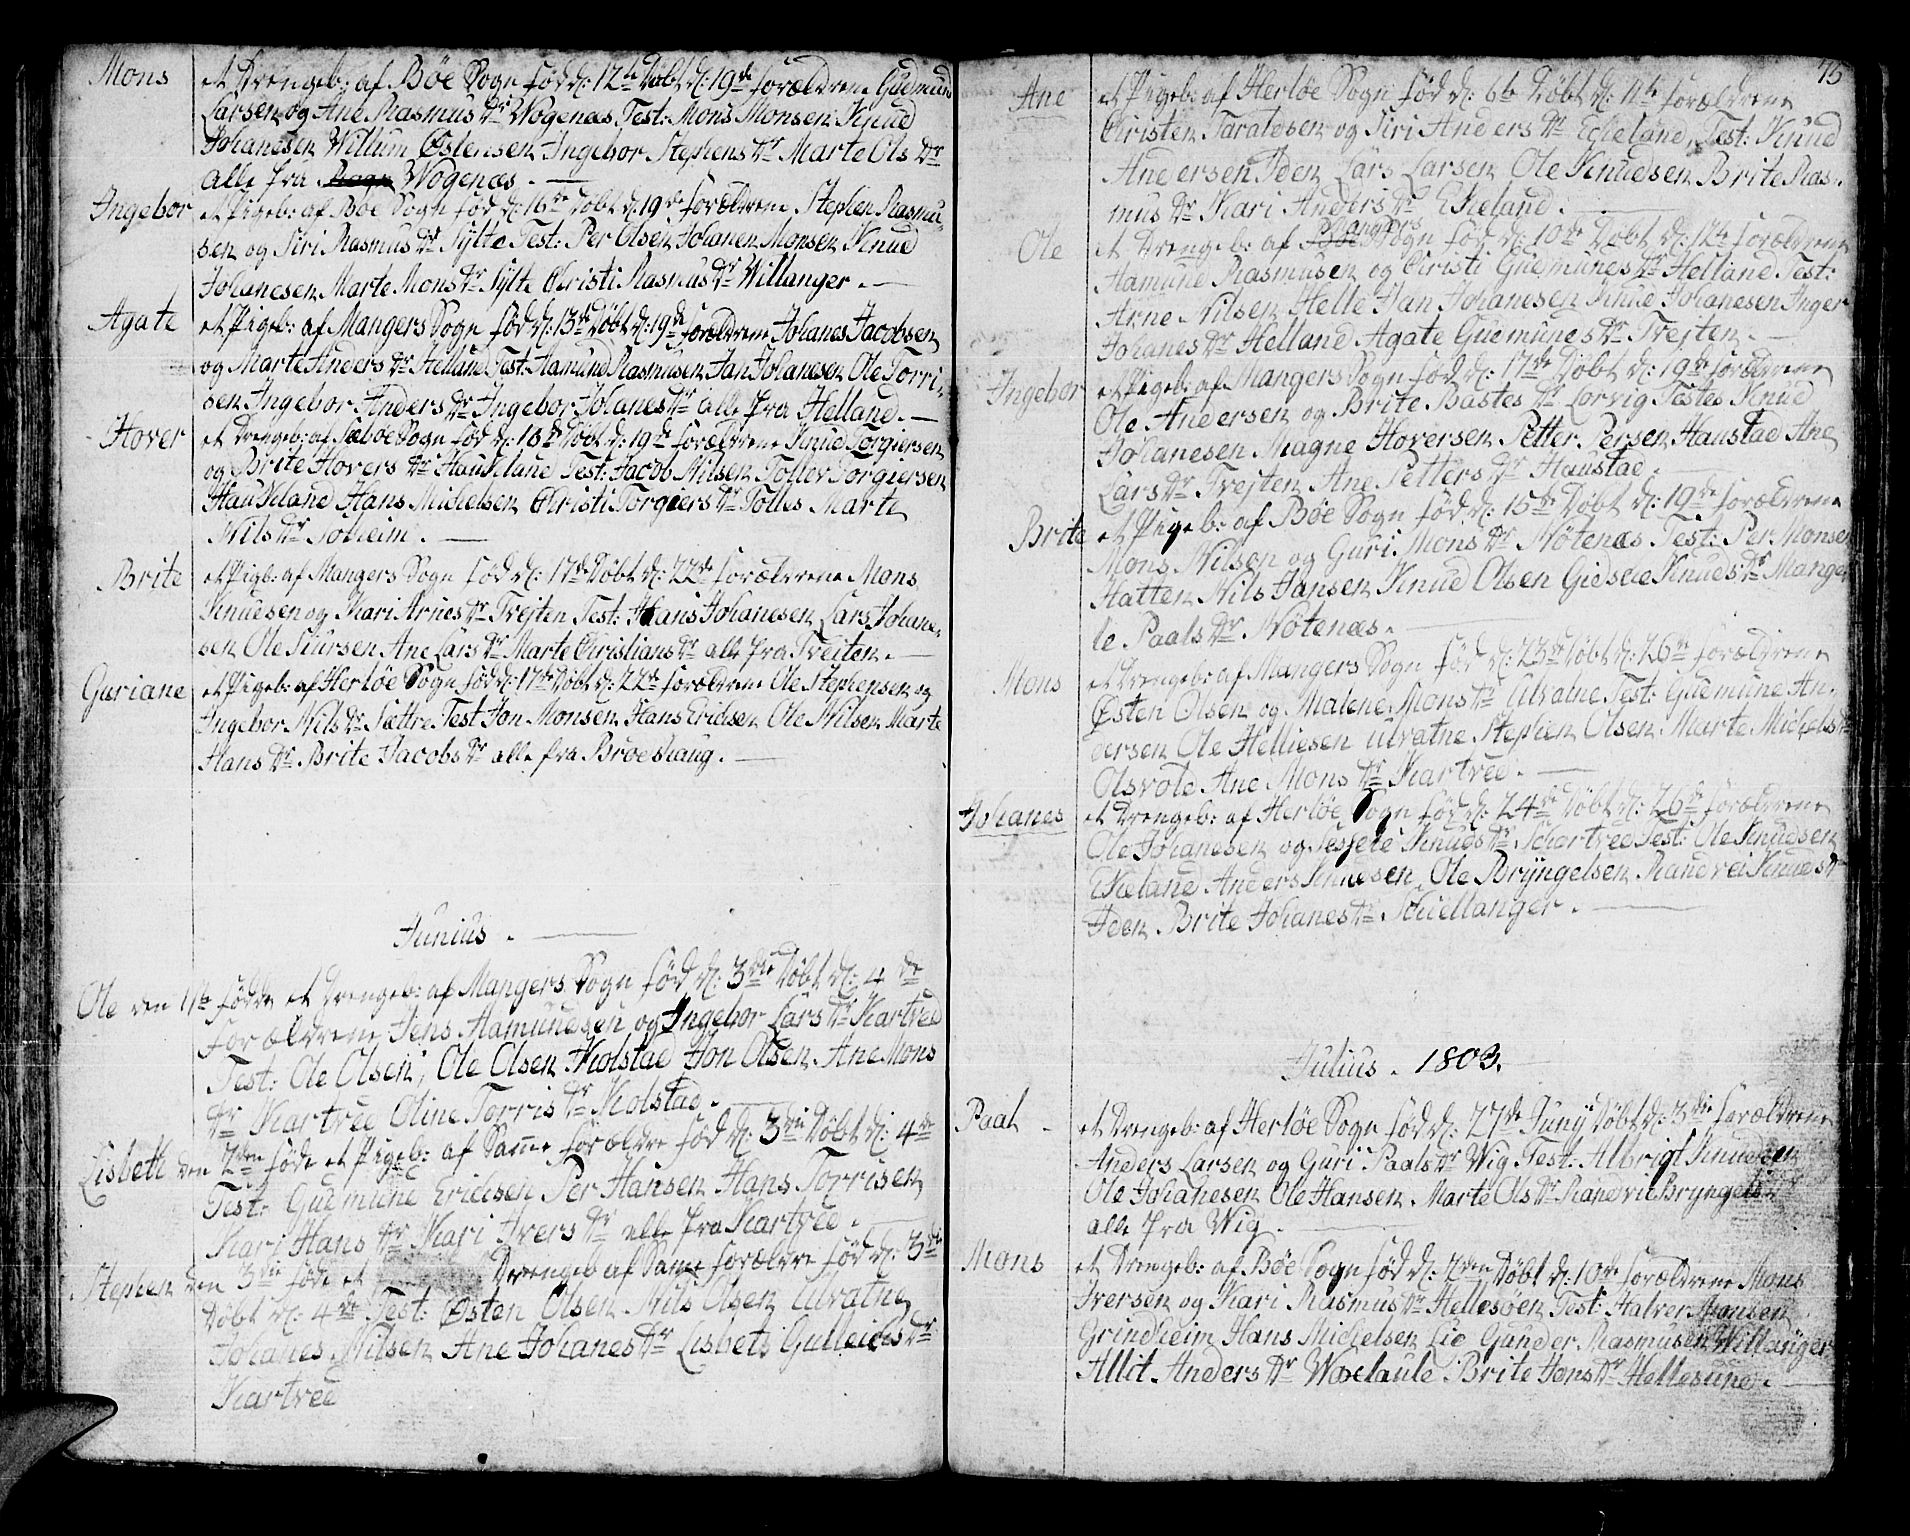 Mons et Drengeb: af Böe Sogn föd d: 12te Döbt d: 19de forældrene Gudmund
Larsen og Ane Rasmus Dr Wogenæs Test: Mons Monsen Knud
Johanesen Willum Østensen Ingebor Stephens Dr Marte Ols Dr
alle fra Wogenæs.
Ingebor et Pigeb: af Böe Sogn föd d: 16de Döbt d: 19de forældrene Stephen Rasmu-
sen og Siri Rasmus Dr Sylte Test: Per Olsen Johanen Monsen Knud
Johanesen Marte Mons Dr Sylte Christi Rasmus Dr Willanger.
Agate et Pigeb: af Mangers Sogn föd d: 13de Döbt d: 19de forældrene Johanes Jacobsen
og Marte Anders Dr Helland Test: Aamund Rasmusen Jan Johanesen Ole Torri-
sen Ingebor Anders Dr Ingebor Johanes Dr alle fra Helland.
Hover et Drengeb: af Sæboe Sogn föd d: 18de Döbt d: 19de forældrene Knud Torgiersen
og Brite Hovers Dr Haukeland Test: Jacob Nilsen Tollev Torgiersen
Haukeland Hans Michelsen Christi Torgiers Dr Tolles Marte
Nils Dr Soheim.
Brite et Pigb: af Mangers Sogn föd d: 17de Döbt d: 22de forældrene Mons
Knudsen og Kari Arnes Dr Trejten Test: Hans Johanesen Lars Johane-
sen Ole Siursen Ane Lars Dr Marte Christians Dr alle fra Treiten.
Guriane et Pigeb: af Herlöe Sogn föd d: 17de Döbt d: 22de forældrene Ole Stephensen og
Ingebor Nils Dr Sættre Test Jon Monsen Hans Ericksen Ole Nilsen Marte
Hans Dr Brite Jacobs Dr alle fra Broeshaug.
Junius.
Ole den 1ste födde et Drengeb: af Mangers Sogn föd d: 3die Döbt d: 4de
forældrene Jens Aamundsen og Ingebor Lars Dr Kartved
Test: Ole Olsen, Ole Olsen Kolstad Jon Olsen Ane Mons
Dr Kartved Oline Torris Dr Kolstad.
Lisbeth den 2den föde et Pigeb: af Samme forældre föd d: 3die Döbt d: 4de
Test: Gudmund Ericksen Per Hansen Hans Torrisen
Kari Hans Dr Kari Ivers Dr alle fra Kartved.
Stephen den 3die föde et Drengeb af Same forældre föd d: 3die
Döbt d: 4de Test: Østen Olsen Nils Olsen Ulvatne
Johanes Nilsen Ane Johanes Dr Lisbeth Gulleichs Dr
Kartved
75
Ane et Pigeb: af Herlöe Sogn föd d: 6te Döbt d: 11te forældrene
Christen Taraldsen og Siri Anders Dr Eckeland, Test: Knud
Andersen Iden Lars Larsen Ole Knudsen Brite Ras-
mus Dr Kari Anders Dr Ekeland.
Ole et Drengeb: af Mangers Sogn föd d: 10de Döbt d: 12te forældrene
Aamund Rasmusen og Christi Gudmunds Dr Helland Test:
Arne Nilsen Helle Jan Johanesen Knud Johanesen Inger
Johanes Dr Helland Agate Gudmunds Dr Trejten.
Ingebor et Pigeb: af Mangers Sogn föd d: 17de Döbt d: 19de forældrene
Ole Andersen og Brite Bastes Dr Lorvig Testes Knud
Johanesen Magne Hoversen Petter Persen Haustad Ane
Lars Dr Trejten Ane Petters Dr Haustad.
Brite et Pigeb: af Böe Sogn föd d: 15de Döbt d: 19de forældrene
Mons Nilsen og Guri Mons Dr Nötenæs Test: Per Monsen
Hatten Nils Jansen Knud Olsen Gidsele Knuds Dr Manger
le Paals Dr Nötenæs.
Mons et Drengeb: af Mangers Sogn föd d: 23de Döbt d: 26de forældrene
Østen Olsen og Malene Mons Dr Ulvatne Test: Gudmund An-
dersen Ole Helliesen Ulvatne Stephen Olsen Marte Michels Dr
Olsvold Ane Mons Dr Kartved.
Johanes et Drengeb: af Herlöe Sogn föd d: 24de Döbt d: 26de forældrene
Ole Johanesen og Sessele Knuds Dr Schartved Test: Ole Knudsen
Ekeland Anders Knudsen Ole Bryngelsen Randvei Knuds Dr
Iden Brite Johanes Dr Schiellanger.
Julius. 1803.
Paal et Drengeb: af Herlöe Sogn föd d: 27de Juny Döbt d: 3die forældrene
Anders Larsen og Guri Paals Dr Wig Test: Albrigt Knudsen
Ole Johanesen Ole Hansen Marte Ols Dr Randvi Bryngels Dr
alle fra Wig.
Mons et Drengeb: af Böe Sogn föd d: 2den Döbt d: 10de forældrene Mons
Iversen og Kari Rasmus Dr Hellesöen Test: Halver Monsen
Grindheim Hans Michelsen Lie Gunder Rasmusen Willanger
Allit Anders Dr Woclaule Brite Jens Dr Hellesund.